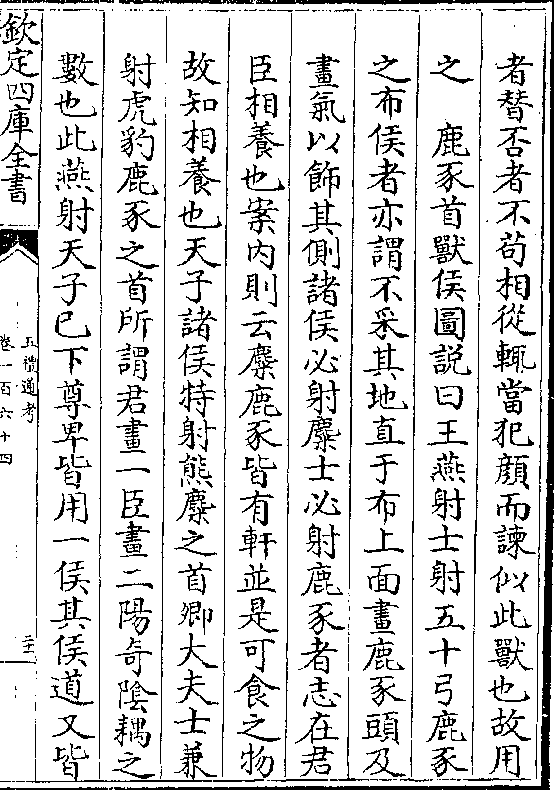 者替否者不苟相從輒當犯顔而諫似此獸也故用
之　鹿豕首獸侯圖説曰王燕射士射五十弓鹿豕
之布侯者亦謂不采其地直于布上面畫鹿豕頭及
畫氣以飾其側諸侯必射麋士必射鹿豕者志在君
臣相養也案内則云麋鹿豕皆有軒並是可食之物
故知相養也天子諸侯特射熊麋之首卿大夫士兼
射虎豹鹿豕之首所謂君畫一臣畫二陽竒陰耦之
數也此燕射天子已下尊卑皆用一侯其侯道又皆
欽定四庫全書
五禮通考
卷一百六十四